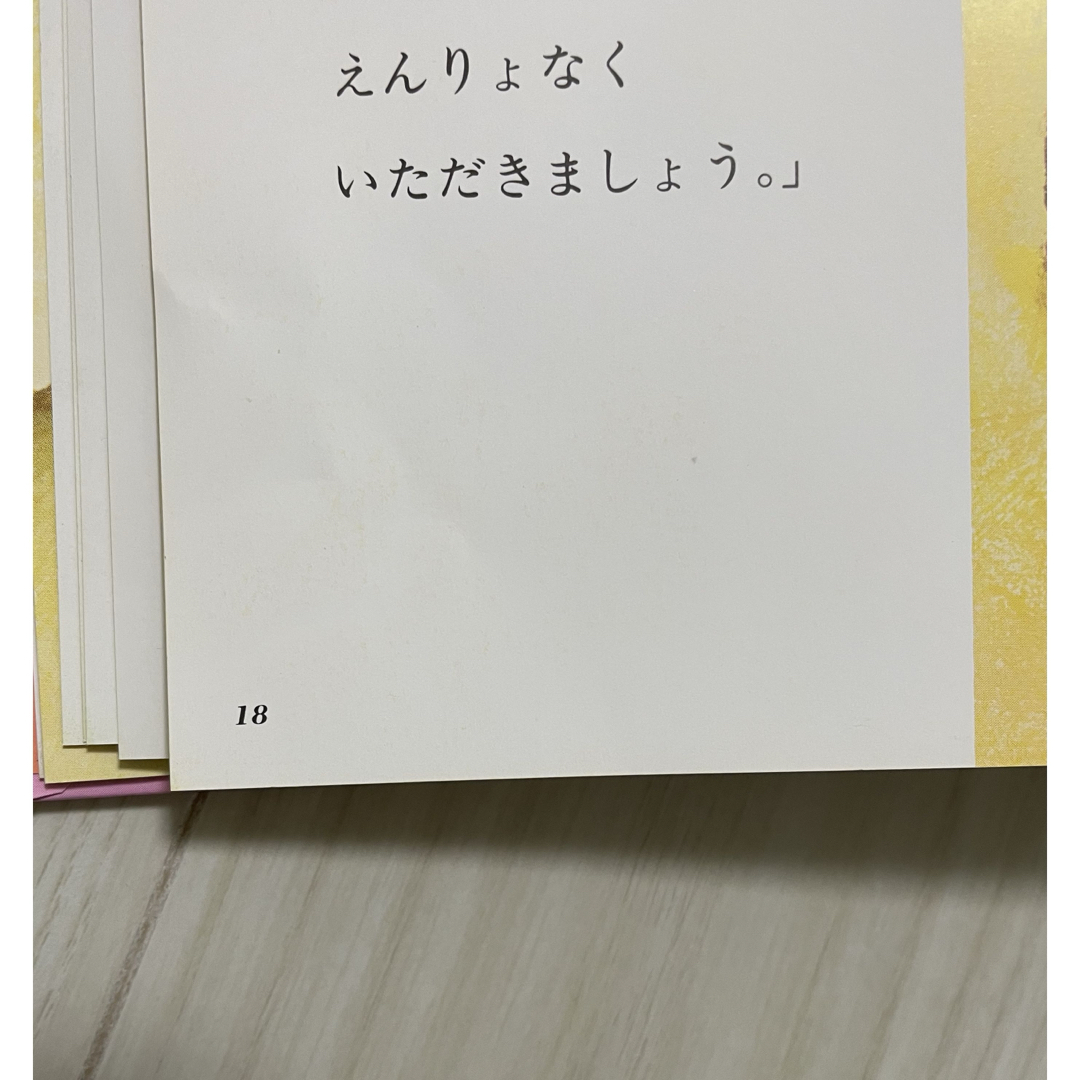 えんりょなく
いただきましょう。」
18